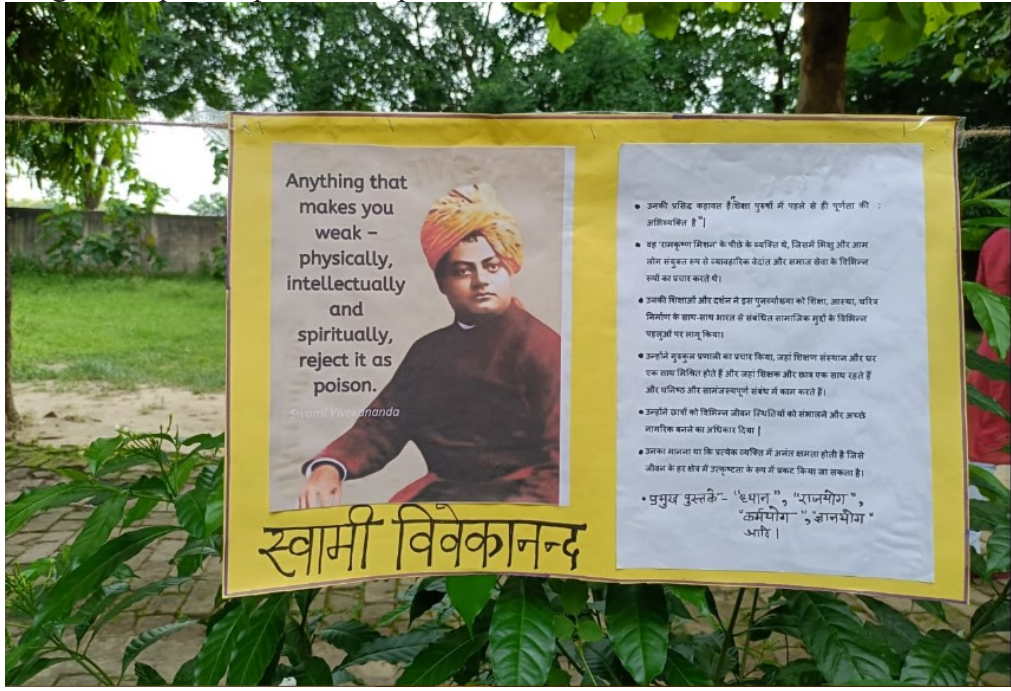 Anything that
makes you
weak –
physically,
intellectually
and
spiritually,
reject it as
poison.
Swami Vivekananda
स्वामी विवेकानन्द
• उनकी प्रसिद्ध कहावत है "शिक्षा पुरुषों में पहले से ही पूर्णता की :
अभिव्यक्ति है "|
• वह 'रामकृष्ण मिशन' के पीछे के व्यक्ति थे, जिसमें भिक्षु और आम
लोग संयुक्त रूप से व्यावहारिक वेदांत और समाज सेवा के विभिन्न
रूपों का प्रचार करते थे।
• उनकी शिक्षाओं और दर्शन ने इस पुनर्व्याख्या को शिक्षा, आस्था, चरित्र
निर्माण के साथ-साथ भारत से संबंधित सामाजिक मुद्दों के विभिन्न
पहलुओं पर लागू किया।
• उन्होंने गुरुकुल प्रणाली का प्रचार किया, जहां शिक्षण संस्थान और घर
एक साथ मिश्रित होते हैं और जहां शिक्षक और छात्र एक साथ रहते हैं
और घनिष्ठ और सामंजस्यपूर्ण संबंध में काम करते हैं।
• उन्होंने छात्रों को विभिन्न जीवन स्थितियों को संभालने और अच्छे
नागरिक बनने का अधिकार दिया |
• उनका मानना था कि प्रत्येक व्यक्ति में अनंत क्षमता होती है जिसे
जीवन के हर क्षेत्र में उत्कृष्टता के रूप में प्रकट किया जा सकता है।
• प्रमुख पुस्तकें - "ध्यान", "राजयोग",
"कर्मयोग", "ज्ञानयोग"
आदि |